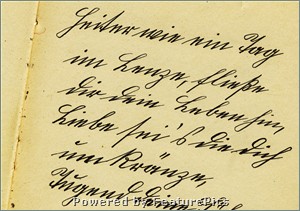 Heiter wie ein Tag
im Lenze, fließe
dir dein Leben hin,
Liebe sei's die dich
umkränze,
Tugend
Powered by FeaturePics